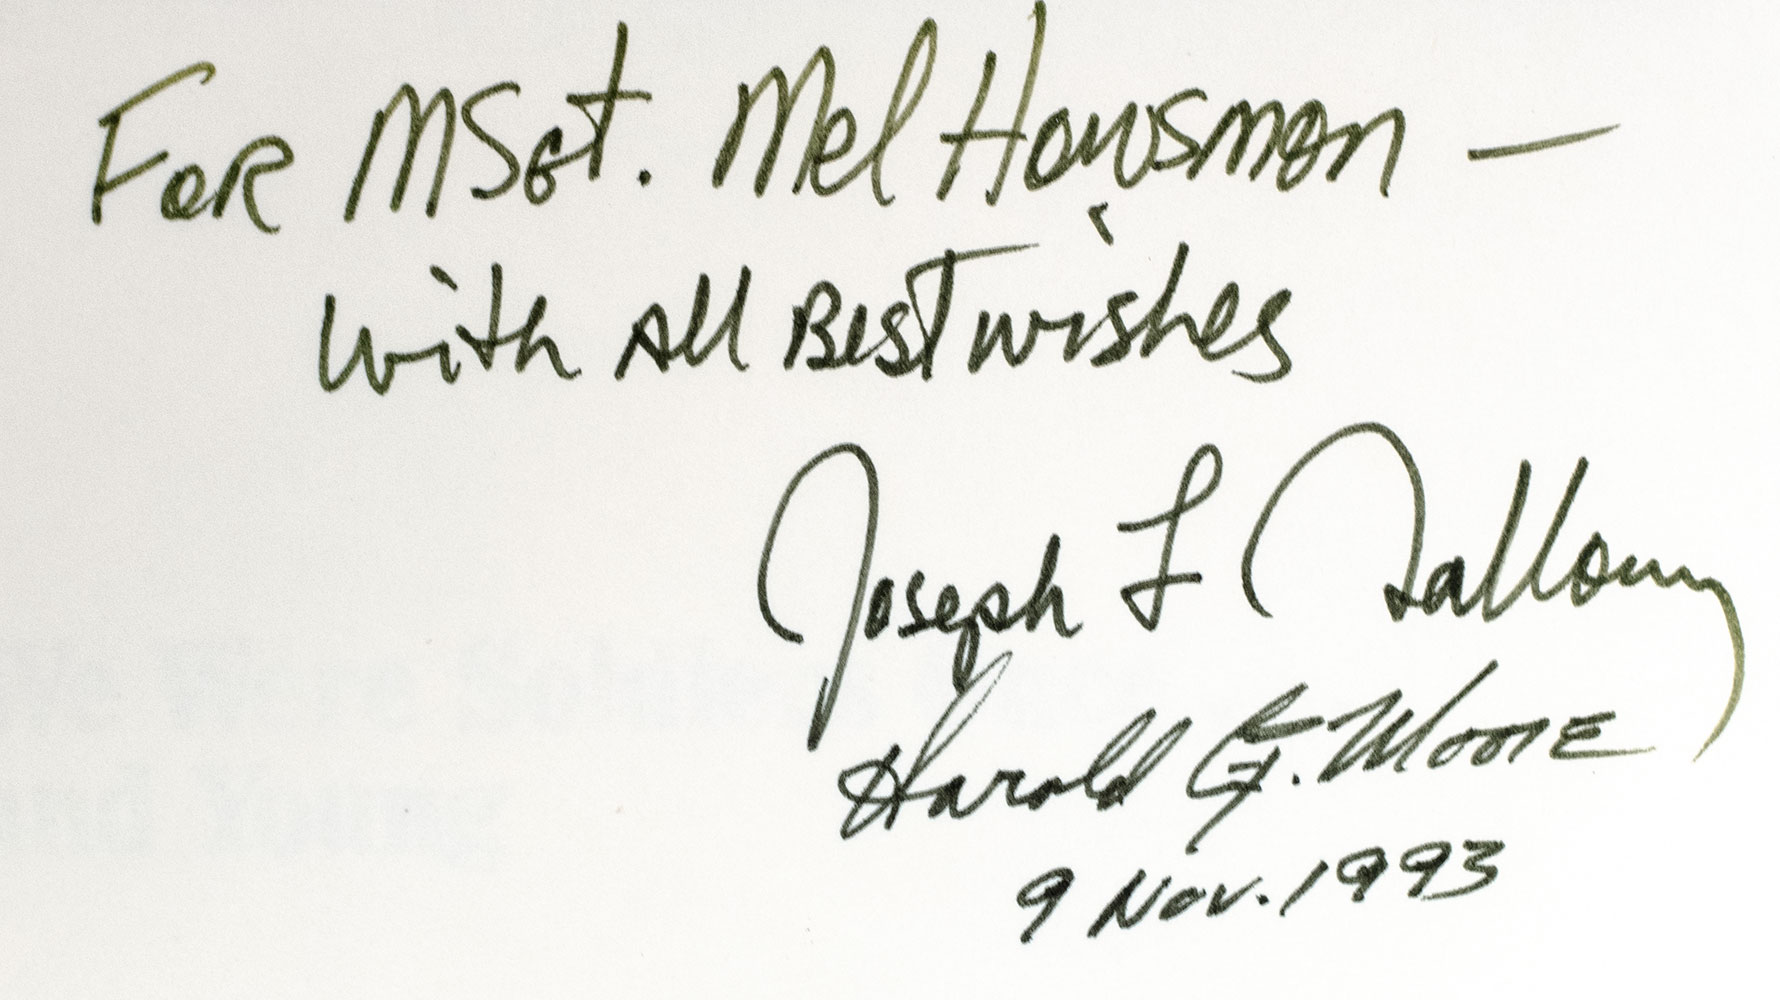 For MSgt. Mel Howsman —
With All Best wishes
Joseph L Galloway
Harold G. Moore
9 Nov. 1993